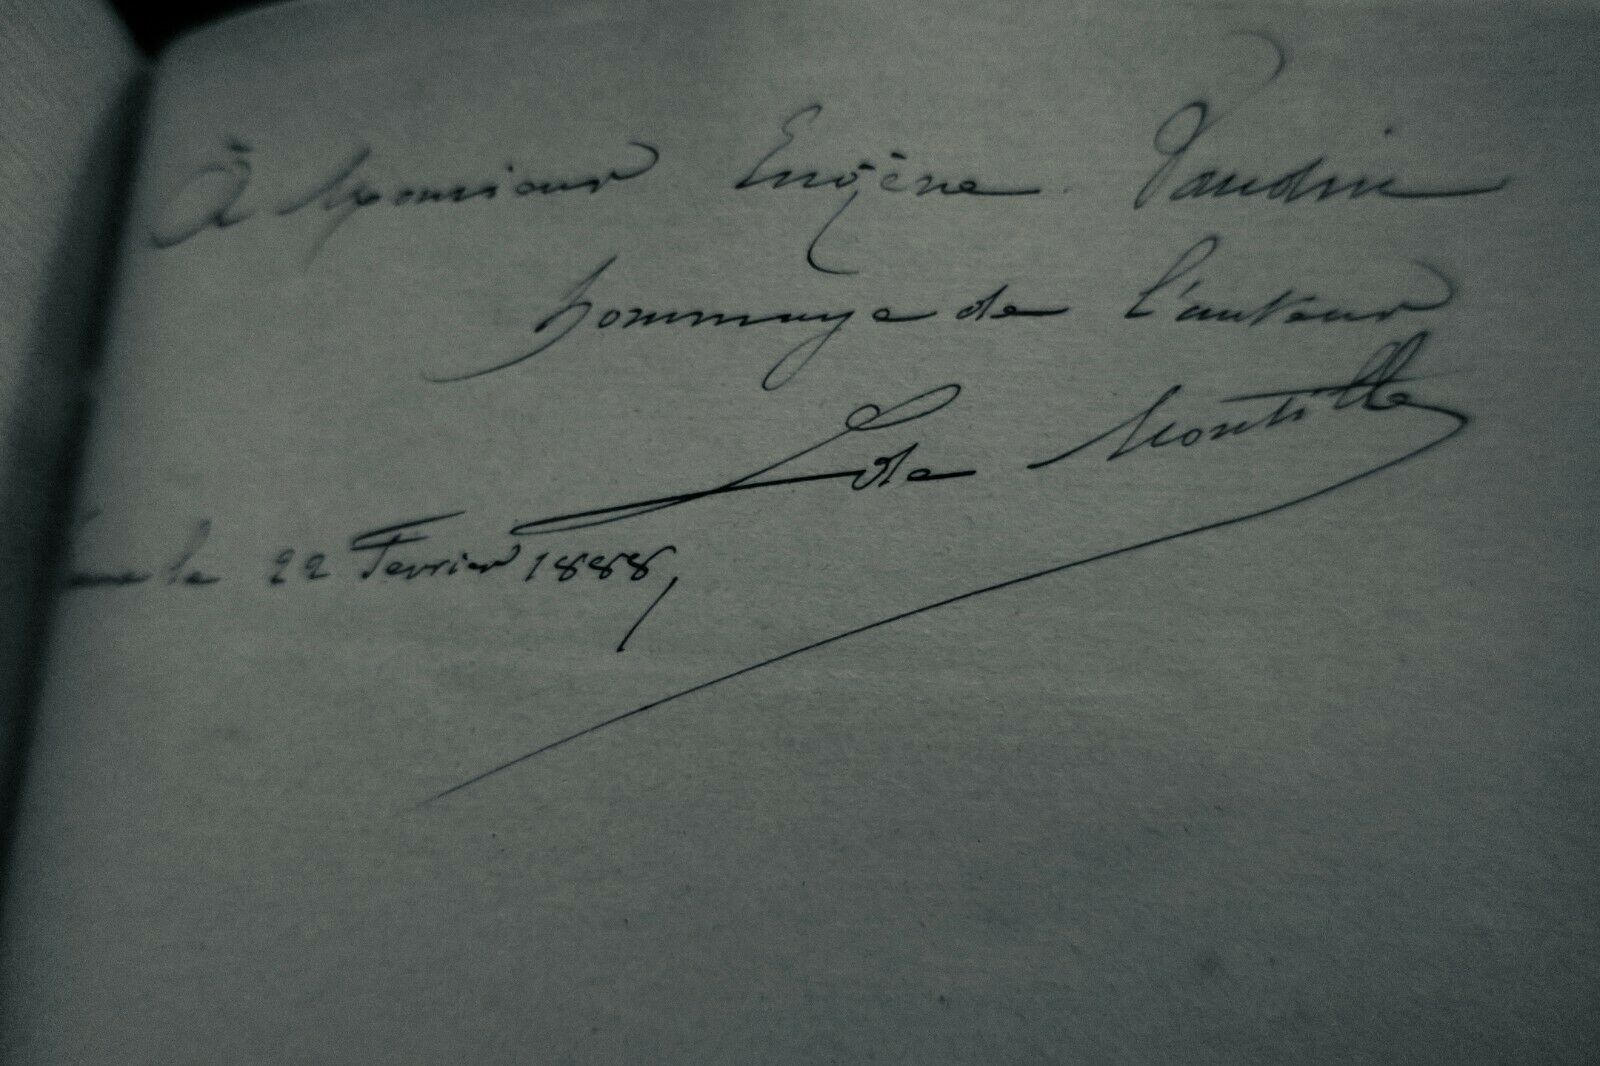 À Monsieur Eugène Vaudin
hommage de l'auteur
L de Montille
le 22 Fevrier 1888